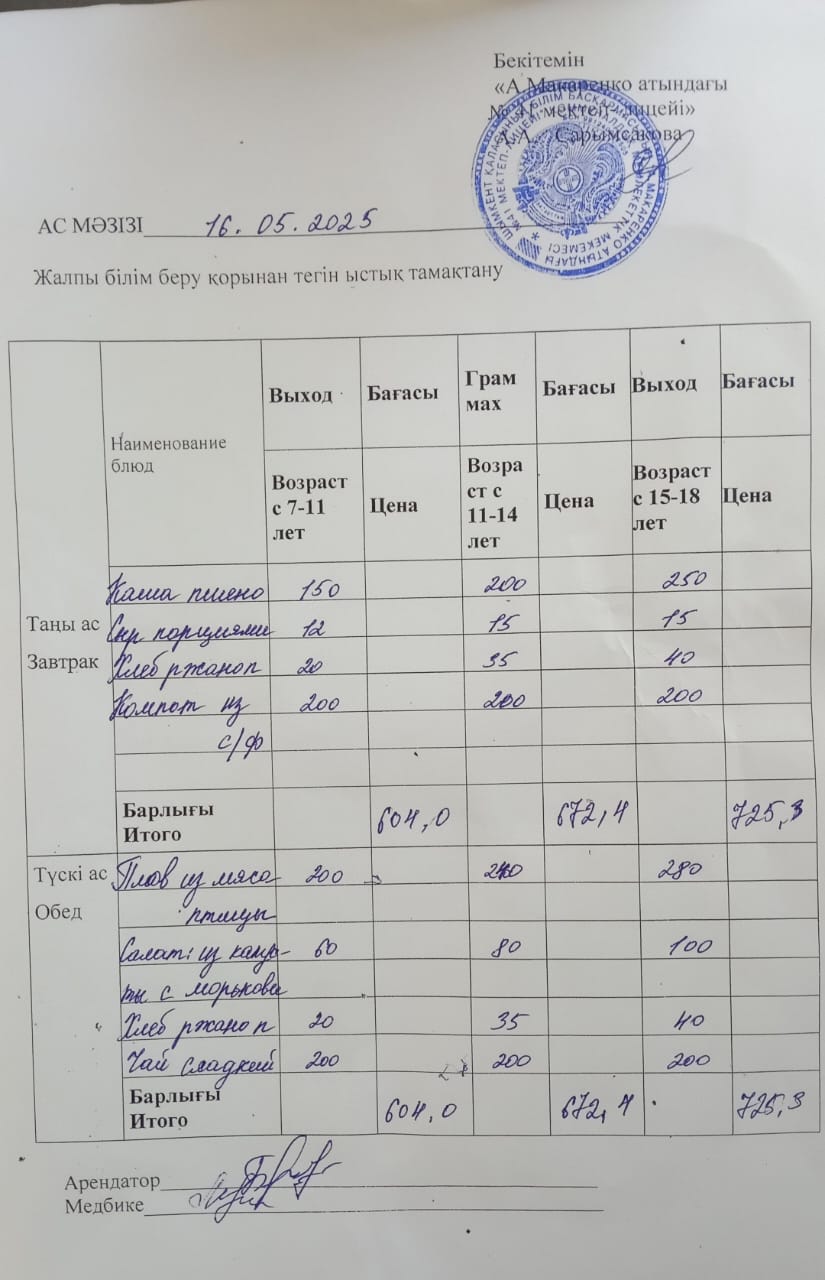 Бекітемін
«А Макаренко атындағы
мектеп-лицейі»
Сарымсакова
ШЫМКЕНТ ҚАЛАСЫНЫҢ БІЛІМ БАСҚАРМАСЫНЫҢ
МАКАРЕНКО АТЫНДАҒЫ №41 МЕКТЕП-ЛИЦЕЙІ
МЕМЛЕКЕТТІК МЕКЕМЕСІ
АС МӘЗІЗІ 16. 05. 2025
Жалпы білім беру қорынан тегін ыстық тамақтану
Наименование блюд Выход Бағасы Грам мах Бағасы Выход Бағасы
Возраст с 7-11 лет Цена Возра ст с 11-14 лет Цена Возраст с 15-18 лет Цена
Таңы ас
Завтрак
Каша пшено 150 200 250
Сыр порциями 12 15 15
Хлеб ржаноп 20 35 40
Компот из 200 200 200
с/ф
Барлығы
Итого 604,0 672,4 725,3
Түскі ас
Обед
Плов из мяса 200 240 280
птицы
Салат: из капус- 60 80 100
ты с морькови
Хлеб ржаноп 20 35 40
Чай сладкий 200 200 200
Барлығы
Итого 604,0 672,4 725,3
Арендатор
Медбике